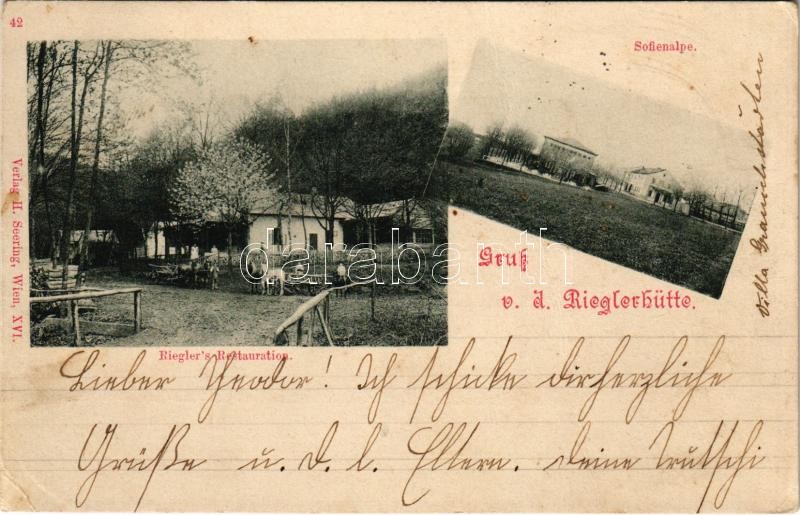 42
Sofienalpe.
Verlag H. Seering, Wien, XVI.
darabanth
Gruß
v. d. Rieglerhütte.
Riegler's Restauration.
Villa
Lieber Theodor! Ich schicke dir herzliche
Grüße u. d. l. Eltern. Deine Trutschi